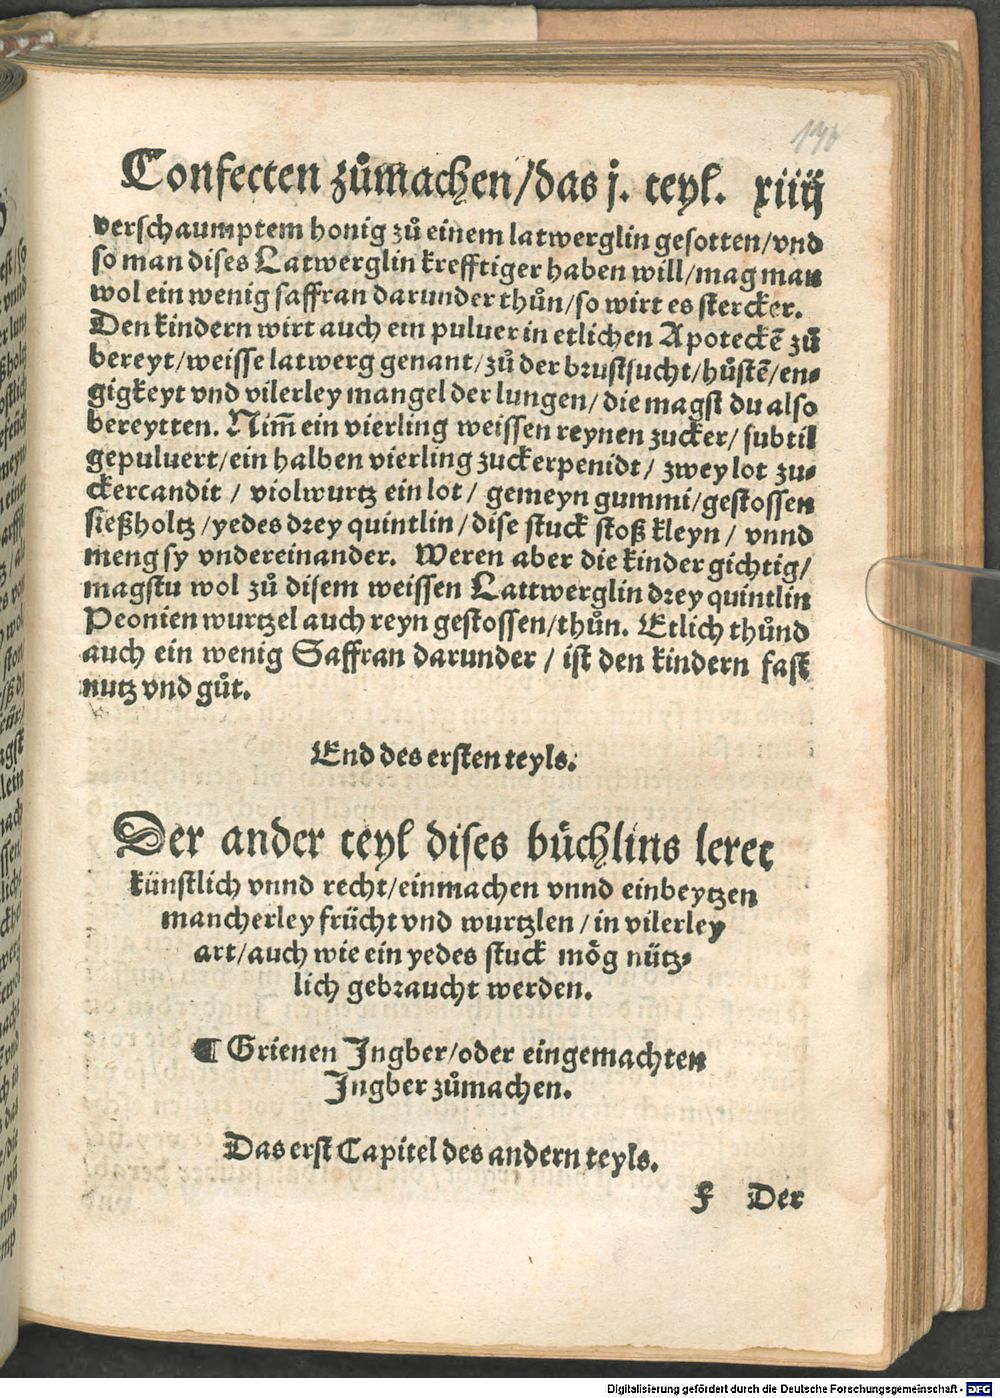 Confecten zůmachen/das j. teyl. xiiij
verschaumptem honig zů einem latwerglin gesotten/vnd
so man dises Latwerglin krefftiger haben will/mag man
wol ein wenig saffran darunder thůn/so wirt es stercker.
Den kindern wirt auch ein puluer in etlichen Apoteckē zů
bereyt/weisse latwerg genant/zů der brustsucht/hůstē/en-
gigkeyt vnd vilerley mangel der lungen/die magst du also
bereytten. Nim̄ ein vierling weissen reynen zucker/subtil
gepuluert/ein halben vierling zuckerpenidt/zwey lot zu-
ckercandit/violwurtz ein lot/gemeyn gummi/gestossen
sießholtz/yedes drey quintlin/dise stuck stoß kleyn/vnnd
meng sy vndereinander. Weren aber die kinder gichtig/
magstu wol zů disem weissen Lattwerglin drey quintlin
Peonien wurtzel auch reyn gestossen/thůn. Etlich thůnd
auch ein wenig Saffran darunder/ist den kindern fast
nutz vnd gůt.
End des ersten teyls.
Der ander teyl dises bůchlins leret
künstlich vnnd recht/einmachen vnnd einbeytzen
mancherley frücht vnd wurtzlen/in vilerley
art/auch wie ein yedes stuck mög nütz-
lich gebraucht werden.
¶ Grienen Jngber/oder eingemachten
Jngber zůmachen.
Das erst Capitel des andern teyls.
f Der
Digitalisierung gefördert durch die Deutsche Forschungsgemeinschaft - DFG